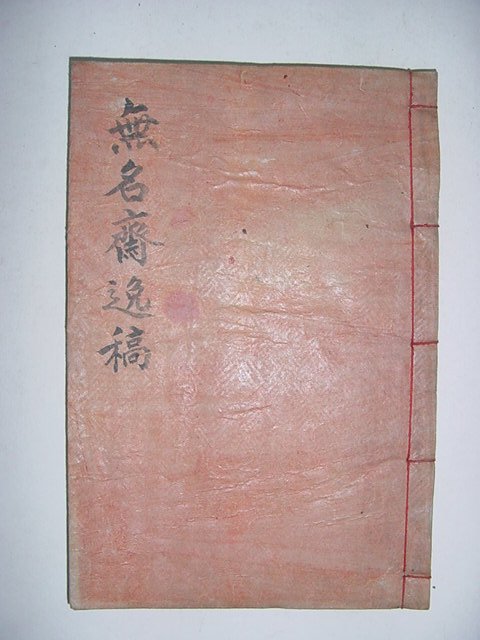 無名齋逸稿